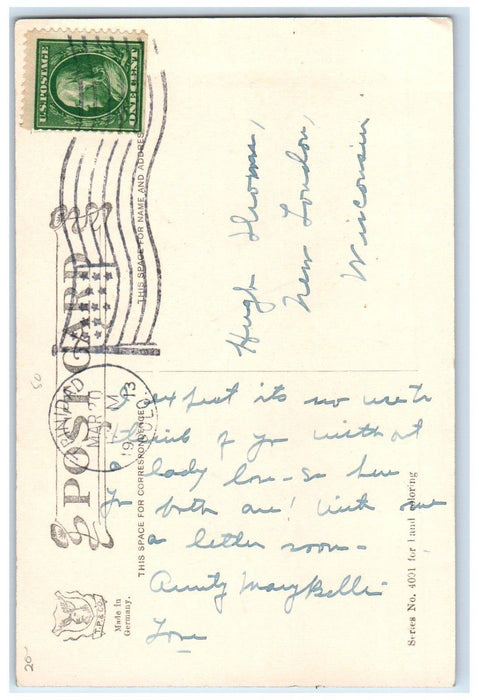 U.S. POSTAGE
ONE CENT
POST CARD
THIS SPACE FOR NAME AND ADDRESS
Hugh Thoms,
New London,
Wisconsin.
MAR 20
1913
COLO.
THIS SPACE FOR CORRESPONDENCE
I expect its no use to
think of you without
a lady love - so here
you both are! Write me
a letter soon -
Aunty MaryBelle
Series No. 4021 for hand coloring
T.P. & CO.
Made in
Germany.
50
20